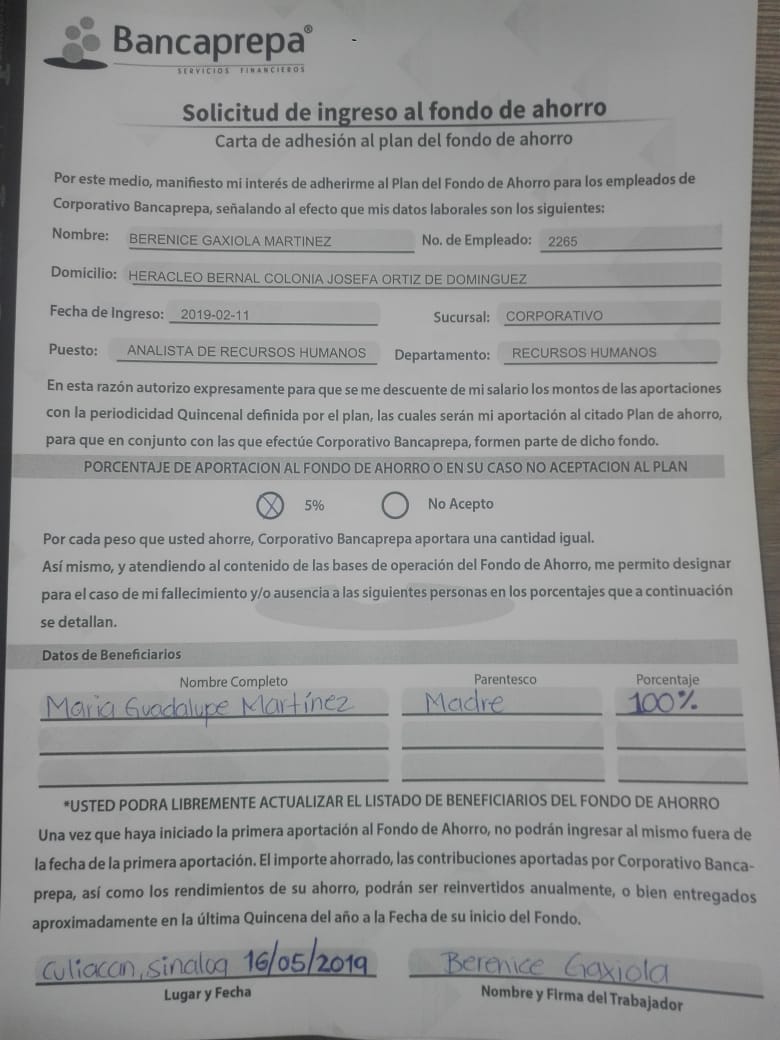 Bancaprepa®
SERVICIOS FINANCIEROS
Solicitud de ingreso al fondo de ahorro
Carta de adhesión al plan del fondo de ahorro
Por este medio, manifiesto mi interés de adherirme al Plan del Fondo de Ahorro para los empleados de
Corporativo Bancaprepa, señalando al efecto que mis datos laborales son los siguientes:
Nombre: BERENICE GAXIOLA MARTINEZ No. de Empleado: 2265
Domicilio: HERACLEO BERNAL COLONIA JOSEFA ORTIZ DE DOMINGUEZ
Fecha de Ingreso: 2019-02-11 Sucursal: CORPORATIVO
Puesto: ANALISTA DE RECURSOS HUMANOS Departamento: RECURSOS HUMANOS
En esta razón autorizo expresamente para que se me descuente de mi salario los montos de las aportaciones
con la periodicidad Quincenal definida por el plan, las cuales serán mi aportación al citado Plan de ahorro,
para que en conjunto con las que efectúe Corporativo Bancaprepa, formen parte de dicho fondo.
PORCENTAJE DE APORTACION AL FONDO DE AHORRO O EN SU CASO NO ACEPTACION AL PLAN
5% No Acepto
Por cada peso que usted ahorre, Corporativo Bancaprepa aportara una cantidad igual.
Así mismo, y atendiendo al contenido de las bases de operación del Fondo de Ahorro, me permito designar
para el caso de mi fallecimiento y/o ausencia a las siguientes personas en los porcentajes que a continuación
se detallan.
Datos de Beneficiarios
Nombre Completo Parentesco Porcentaje
Maria Guadalupe Martínez Madre 100%
*USTED PODRA LIBREMENTE ACTUALIZAR EL LISTADO DE BENEFICIARIOS DEL FONDO DE AHORRO
Una vez que haya iniciado la primera aportación al Fondo de Ahorro, no podrán ingresar al mismo fuera de
la fecha de la primera aportación. El importe ahorrado, las contribuciones aportadas por Corporativo Banca-
prepa, así como los rendimientos de su ahorro, podrán ser reinvertidos anualmente, o bien entregados
aproximadamente en la última Quincena del año a la Fecha de su inicio del Fondo.
Culiacan, Sinaloa 16/05/2019 Berenice Gaxiola
Lugar y Fecha Nombre y Firma del Trabajador